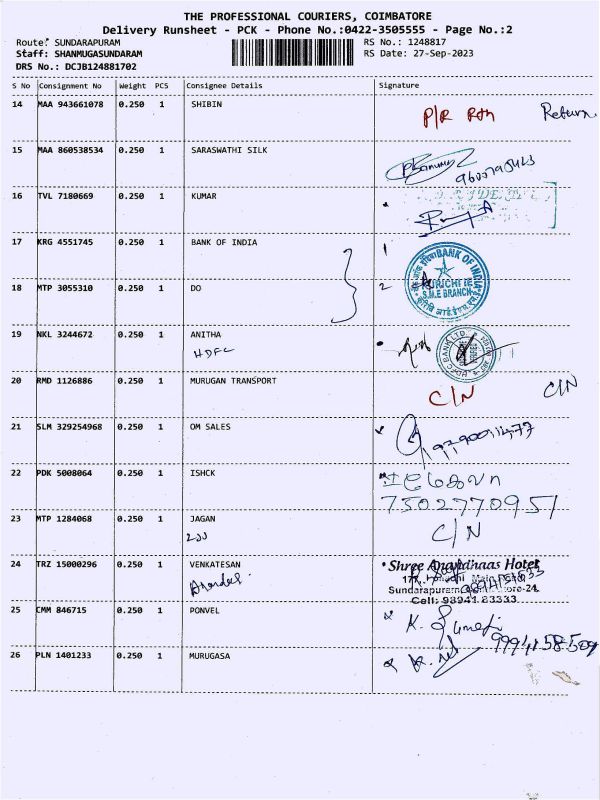 THE PROFESSIONAL COURIERS, COIMBATORE
Delivery Runsheet - PCK - Phone No.:0422-3505555 - Page No.:2
Route: SUNDARAPURAM RS No.: 1248817
Staff: SHANMUGASUNDARAM RS Date: 27-Sep-2023
DRS No.: DCJB124881702
S No Consignment No Weight PCS Consignee Details Signature
14 MAA 943661078 0.250 1 SHIBIN P/R Return
15 MAA 860538534 0.250 1 SARASWATHI SILK
16 TVL 7180669 0.250 1 KUMAR
17 KRG 4551745 0.250 1 BANK OF INDIA 1
BANK OF INDIA
S.M.E BRANCH
18 MTP 3055310 0.250 1 DO 2
19 NKL 3244672 0.250 1 ANITHA
HDFC
20 RMD 1126886 0.250 1 MURUGAN TRANSPORT C/N C/N
21 SLM 329254968 0.250 1 OM SALES
22 PDK 5008064 0.250 1 ISHCK
7502770951
23 MTP 1284068 0.250 1 JAGAN C/N
24 TRZ 15000296 0.250 1 VENKATESAN
Shree Anandhaas Hotel
Cell: 98941 83333
25 CMM 846715 0.250 1 PONVEL K.
26 PLN 1401233 0.250 1 MURUGASA